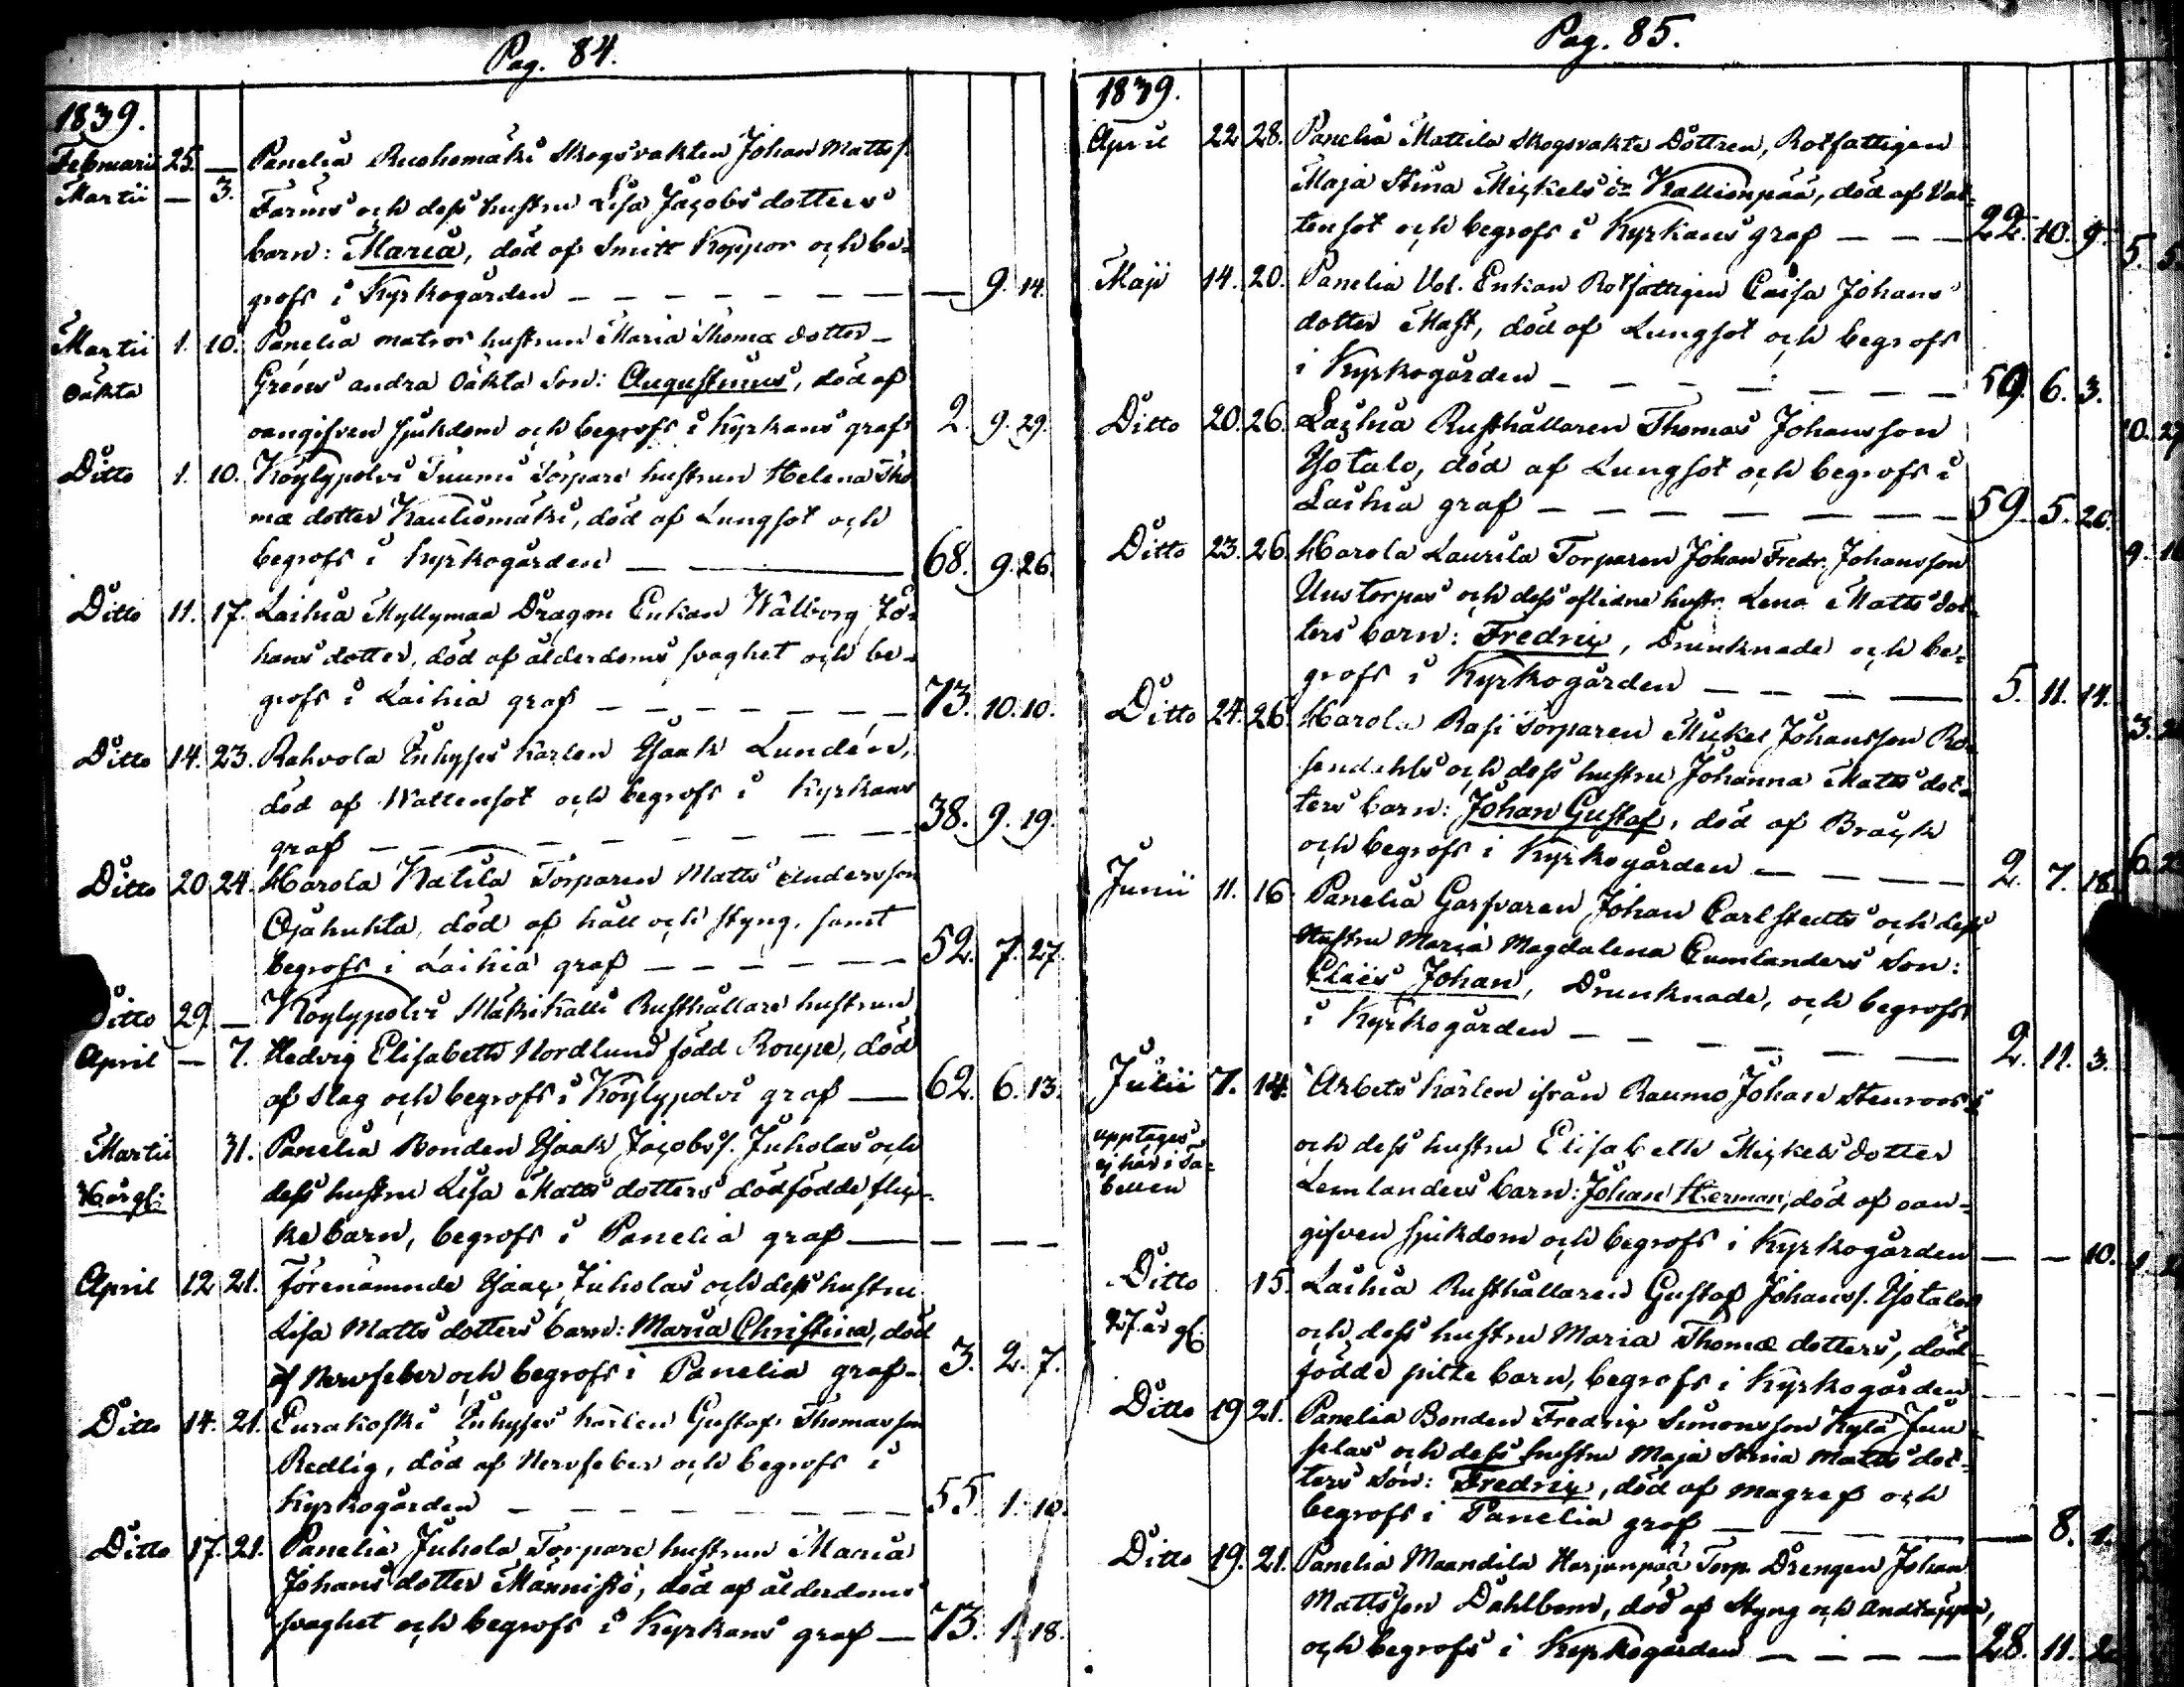 Pag. 84.
1839.
Februarii 25. — Panelia Ruohomäki Skogsvakten Johan Matts s.
Martii — 3. Farins och dess hustru Lisa Jacobs dotters
barn: Maria, död af Smitt Koppor och be-
grofs i Kyrkogården — — — — — — — — 9. 14.
Martii 1. 10. Panelia matros hustrun Maria Thomæ dotter
oäkta Gréens andra Oäkta Son: Augustinus, död af
oangifven sjukdom och begrofs i Kyrkans graf 2. 9. 29.
Ditto 1. 10. Köylypolvi Tuumi Torpare hustrun Helena Tho
mæ dotter Kauliomäki, död af Lungsot och
begrofs i Kyrkogården — — 68. 9. 26.
Ditto 11. 17. Laihia Myllymaa Dragon Enkan Walborg Jo-
hans dotter, död af ålderdoms svaghet och be-
grofs i Laihia graf — — — — — — 73. 10. 10.
Ditto 14. 23. Rahvola Inhyses karlen Isaak Lundén,
död af Wattensot och begrofs i Kyrkans
graf — — — — — — — 38. 9. 19.
Ditto 20. 24. Harola Katila Torparen Matts Andersson
Ojahuhta, död af håll och styng, samt
begrofs i Laihia graf — — — — — — 52. 7. 27.
Ditto 29. — Köylypolvi Mäkikalli Rusthållare hustrun
April — 7. Hedvig Elisabeth Nordlund född Roupe, död
af Slag och begrofs i Köylypolvi graf — 62. 6. 13.
Martii 31. Panelia Bonden Isaak Jacobs s. Juholas och
36 år gl: dess hustru Lisa Matts dotters dödfödde flic-
ke barn, begrofs i Panelia graf — — — —
April 12. 21. Förenämnde Isaac Juholas och dess hustru
Lisa Matts dotters barn: Maria Christina, död
af Nervfeber och begrofs i Panelia graf — 3. 2. 7.
Ditto 14. 21. Eurakoski Inhyses karlen Gustaf Thomasson
Redlig, död af Nervfeber och begrofs i
Kyrkogården — — — — — — 55. 1. 10.
Ditto 17. 21. Panelia Juhola Torpare hustrun Maria
Johans dotter Männistö, död af ålderdoms
svaghet och begrofs i Kyrkans graf — 73. 1. 18.
Pag. 85.
1839.
April 22. 28. Panelia Mattila Skogsvakts Dottren, Rotfattigen
Maja Stina Mickels dr Kallionpää, död af Vat-
tensot och begrofs i Kyrkans graf — — — 22. 10. 9.
Maji 14. 20. Panelia Vol. Enkan Rotfattigen Caisa Johans
dotter Mast, död af Lungsot och begrofs
i Kyrkogården — — — — — — 59. 6. 3.
Ditto 20. 26. Laihia Rusthållaren Thomas Johansson
Isotalo, död af Lungsot och begrofs i
Laihia graf — — — — — — — 59. 5. 26.
Ditto 23. 26. Harola Laurila Torparen Johan Fredr. Johansson
Uustorpas och dess aflidne hustr. Lena Matts dot-
ters barn: Fredric, Drunknade och be-
grofs i Kyrkogården — — — — 5. 11. 14.
Ditto 24. 26. Harola Rasi Torparen Mickel Johansson Ro-
sendahls och dess hustru Johanna Matts dot-
ters barn: Johan Gustaf, död af Bråck
och begrofs i Kyrkogården — — — — 2. 7. 18.
Junii 11. 16. Panelia Garfvaren Johan Carlstedts och dess
Hustru Maria Magdalena Cumlanders Son:
Eliis Johan, Drunknade, och begrofs
i Kyrkogården — — — — — — 2. 11. 3.
Julii 7. 14. Arbets karlen ifrån Raumo Johan Stenroos
upptages och dess hustru Elisabeth Mickels dotter
ej här i Ta- Lemlanders barn: Johan Herman, död af oan-
bellen gifven sjukdom och begrofs i Kyrkogården — — 10.
Ditto 15. Laihia Rusthållaren Gustaf Johans s. Isotalos
27. år gl. och dess hustru Maria Thomæ dotters, död-
födde pilte barn, begrofs i Kyrkogården — — —
Ditto 19. 21. Panelia Bonden Fredric Simonsson Kylä Juu
selas och dess hustru Maja Stina Matts dot-
ters Son: Fredric, död af magref och
begrofs i Panelia graf — — — — 8. 1.
Ditto 19. 21. Panelia Maandila Harjunpää Torp. Drengen Johan
Mattsson Dahlbom, död af Styng och Andtäppa,
och begrofs i Kyrkogården — — — — 28. 11. 2.